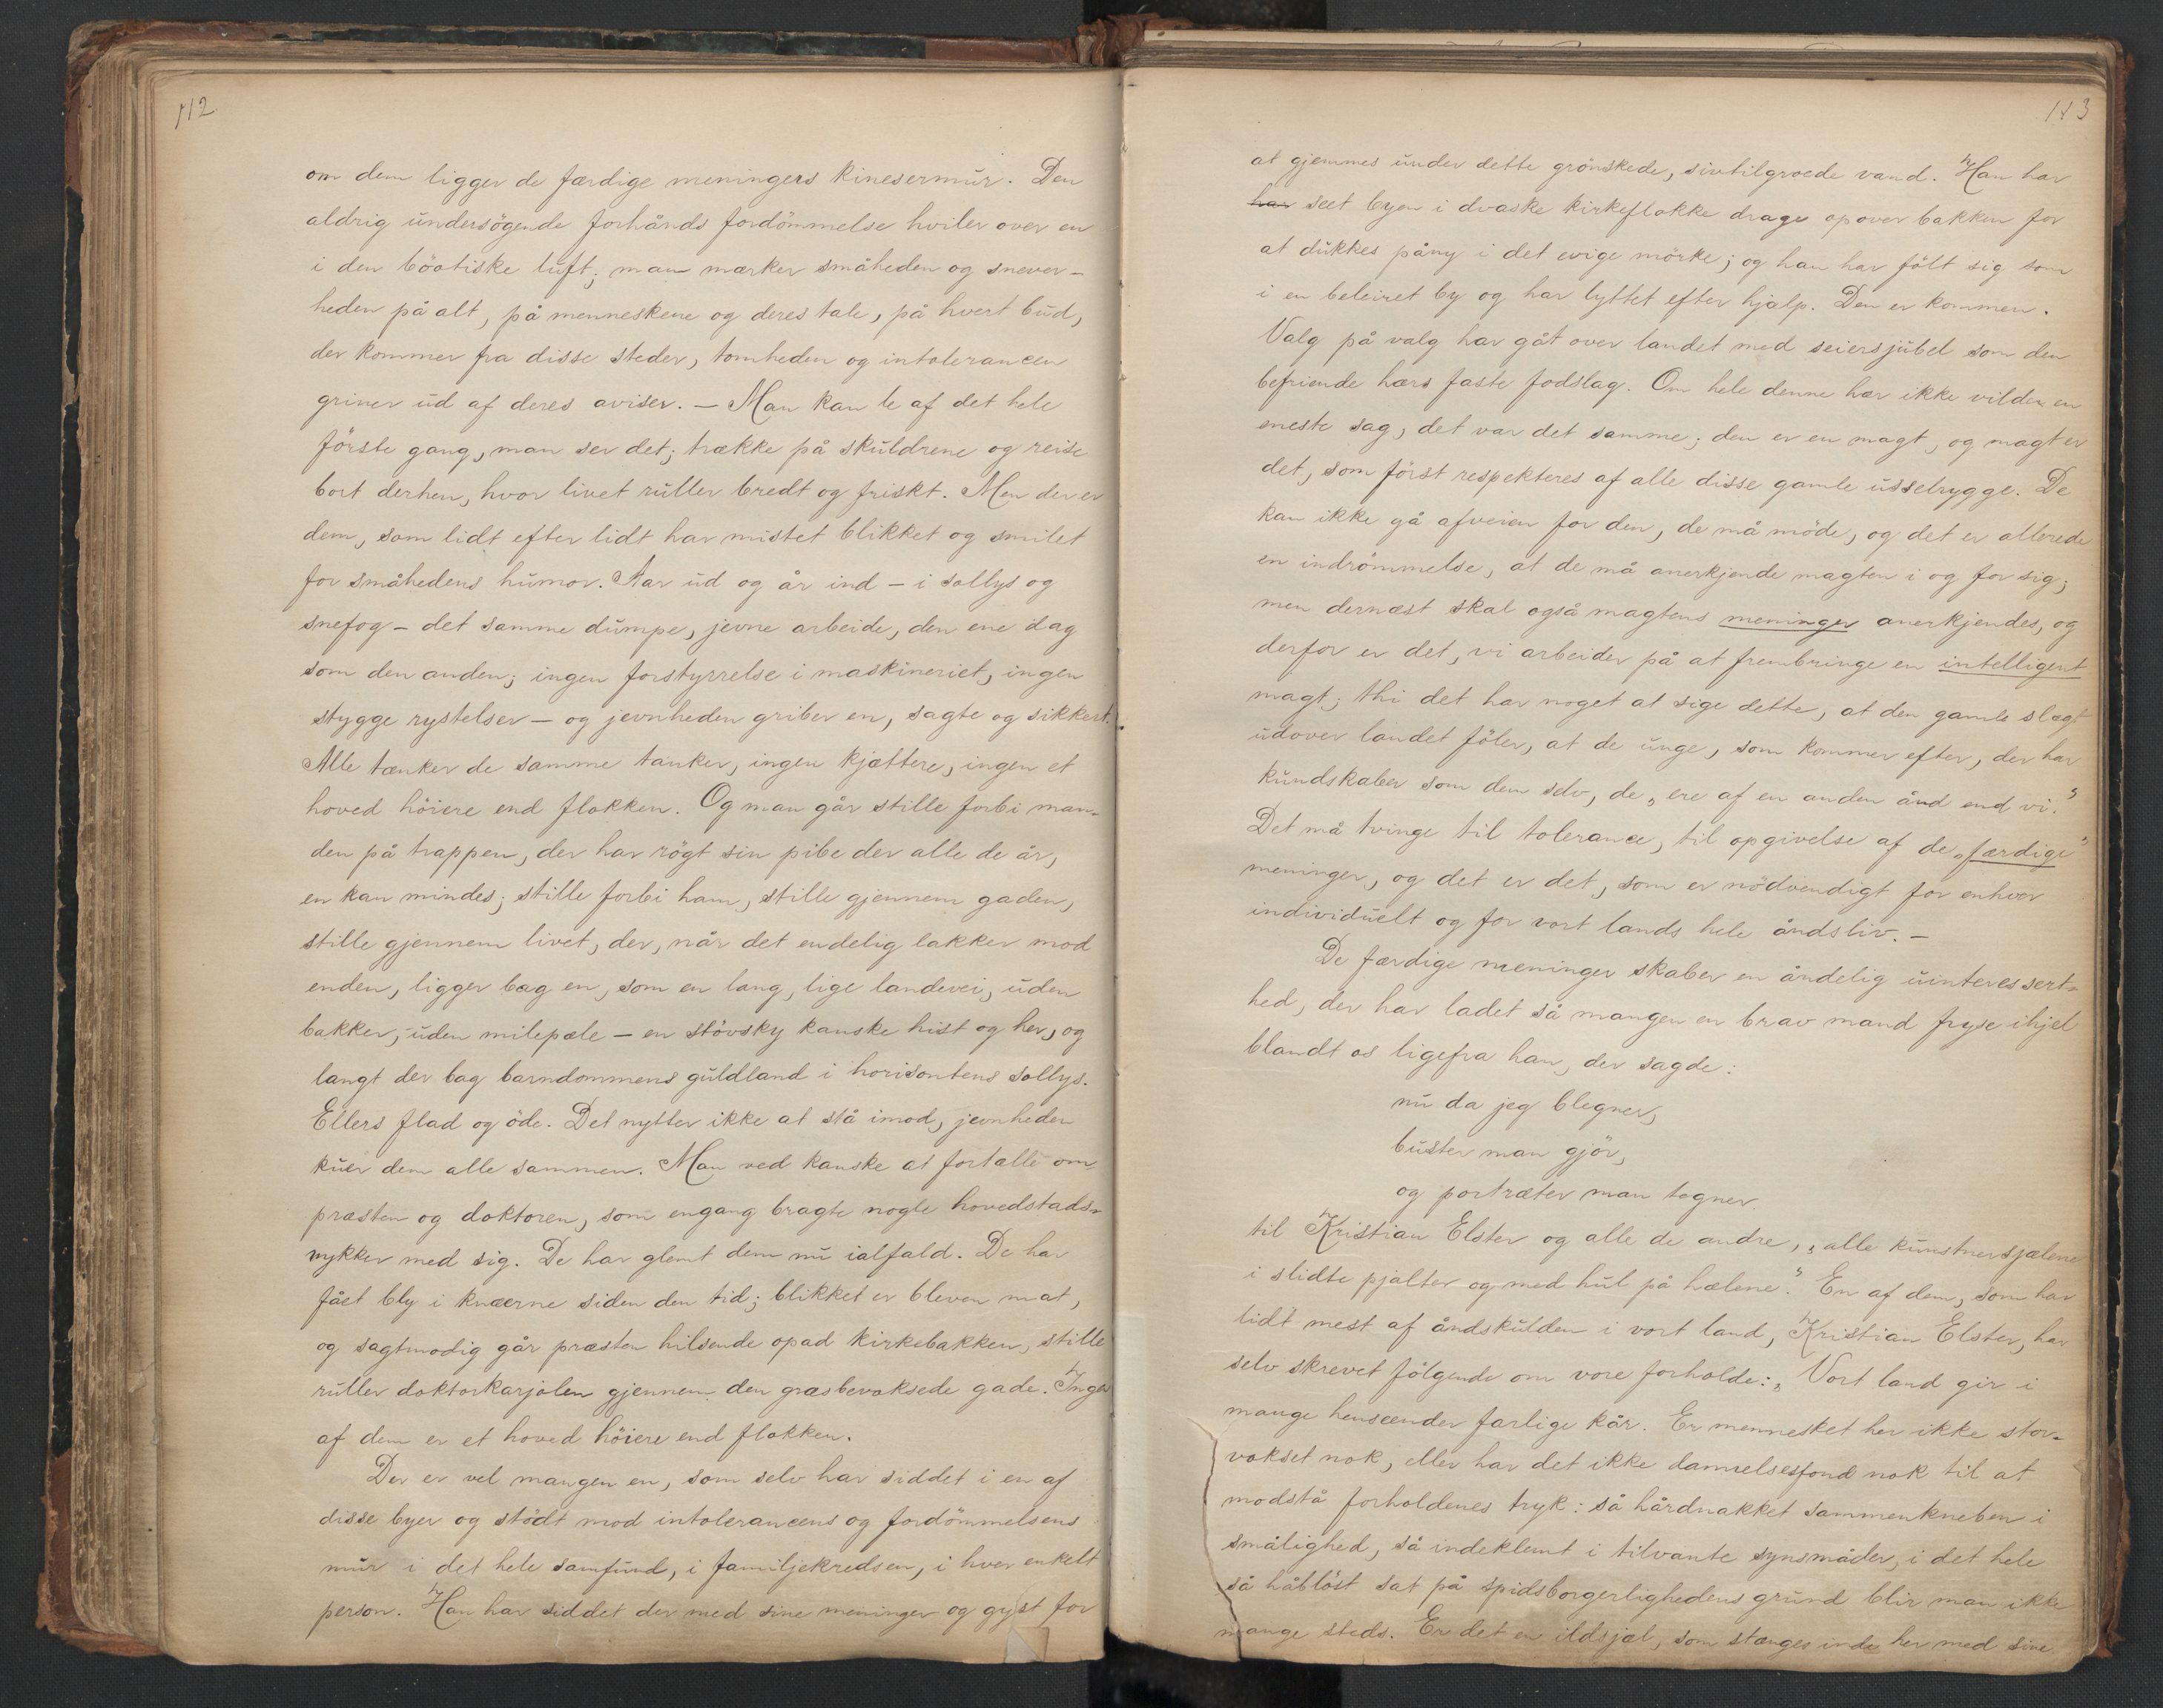 112.
om dem ligger de færdige meningers kinesermur. Den
aldrig undersögende forhånds fordömmelse hviler over en
i den böotiske luft; man mærker småheden og snever-
heden på alt, på menneskene og deres tale, på hvert bud,
der kommer fra disse steder, tomheden og intolerancen
griner ud af deres aviser. — Man kan le af det hele
förste gang, man ser det; trække på skuldrene og reise
bort derhen, hvor livet ruller bredt og friskt. Men der er
dem, som lidt efter lidt har mistet blikket og smilet
for småhedens humor. Aar ud og år ind – i sollys og
snefog – det samme dumpe, jevne arbeide, den ene dag
som den anden; ingen forstyrrelse i maskineriet, ingen
stygge rystelser — og jevnheden griber en, sagte og sikkert.
Alle tænker de samme tanker, ingen kjættere, ingen et
hoved höiere end flokken. Og man går stille forbi man-
den på trappen, der har rögt sin pibe der alle de år,
en kan mindes; stille forbi ham, stille gjennem gaden,
stille gjennem livet, der, når det endelig lakker mod
enden, ligger bag en, som en lang, lige landevei, uden
bakker, uden milepæle — en stövsky kanske hist og her, og
langt der bag barndommens guldland i horisontens sollys.
Ellers flad og öde. Det nytter ikke at stå imod, jevnheden
kuer dem alle sammen. Man ved kanske at fortælle om
præsten og doktoren, som engang bragte nogle hovedstads-
nykker med sig. De har glemt dem nu ialfald. De har
fået bly i knæerne siden den tid; blikket er bleven mat,
og sagtmodig går præsten hilsende opad kirkebakken, stille
ruller doktorkarjolen gjennem den græsbevoksede gade. Ingen
af dem er et hoved höiere end flokken.
Der er vel mangen en, som selv har siddet i en af
disse byer og stödt mod intolerancens og fordömmelsens
mur i det hele samfund, i familjekredsen, i hver enkelt
person. Han har siddet der med sine meninger og gyst for
113
at gjemmes under dette grönskede, sivtilgroede vand. Han har
har seet byen i dvaske kirkeflokke drage opover bakken for
at dukkes påny i det evige mörke; og han har fölt sig som
i en beleiret by og har lyttet efter hjælp. Den er kommen.
Valg på valg har gåt over landet med seiersjubel som den
befriende hærs faste fodslag. Om hele denne hær ikke vilde en
eneste sag, det var det samme; den er en magt, og magt er
det, som först respekteres af alle disse gamle usselrygge. De
kan ikke gå afveien for den, de må möde, og det er allerede
en indrömmelse, at de må anerkjende magten i og for sig;
men dernæst skal også magtens meninger anerkjendes, og
derfor er det, vi arbeider på at frembringe en intelligent
magt; thi det har noget at sige dette, at den gamle slægt
udover landet föler, at de unge, som kommer efter, der har
kundskaber som dem selv, de „ere af en anden ånd end vi."
Det må tvinge til tolerance, til opgivelse af de „færdige"
meninger, og det er det, som er nödvendigt for enhver
individuelt og for vort lands hele åndsliv. —
De færdige meninger skaber en åndelig uinteressert-
hed, der har ladet så mangen en brav mand fryse ihjel
blandt os ligefra han, der sagde:
nu da jeg blegner,
buster man gjör,
og portræter man tegner.
til Kristian Elster og alle de andre, „alle kunstnersjælene
i slidte pjalter og med hul på hælene." En af dem, som har
lidt mest af åndskulden i vort land, Kristian Elster, har
selv skrevet fölgende om vore forholde: „Vort land gir i
mange henseender farlige kår. Er mennesket her ikke stor-
vokset nok, eller har det ikke dannelsesfond nok til at
modstå forholdenes tryk: så hårdnakket sammenkneben i
smålighed, så indeklemt i tilvante synsmåder, i det hele
så håblöst sat på spidsborgerlighedens grund blir man ikke
mange steds. Er det en ildsjæl, som stænges inde her med sine